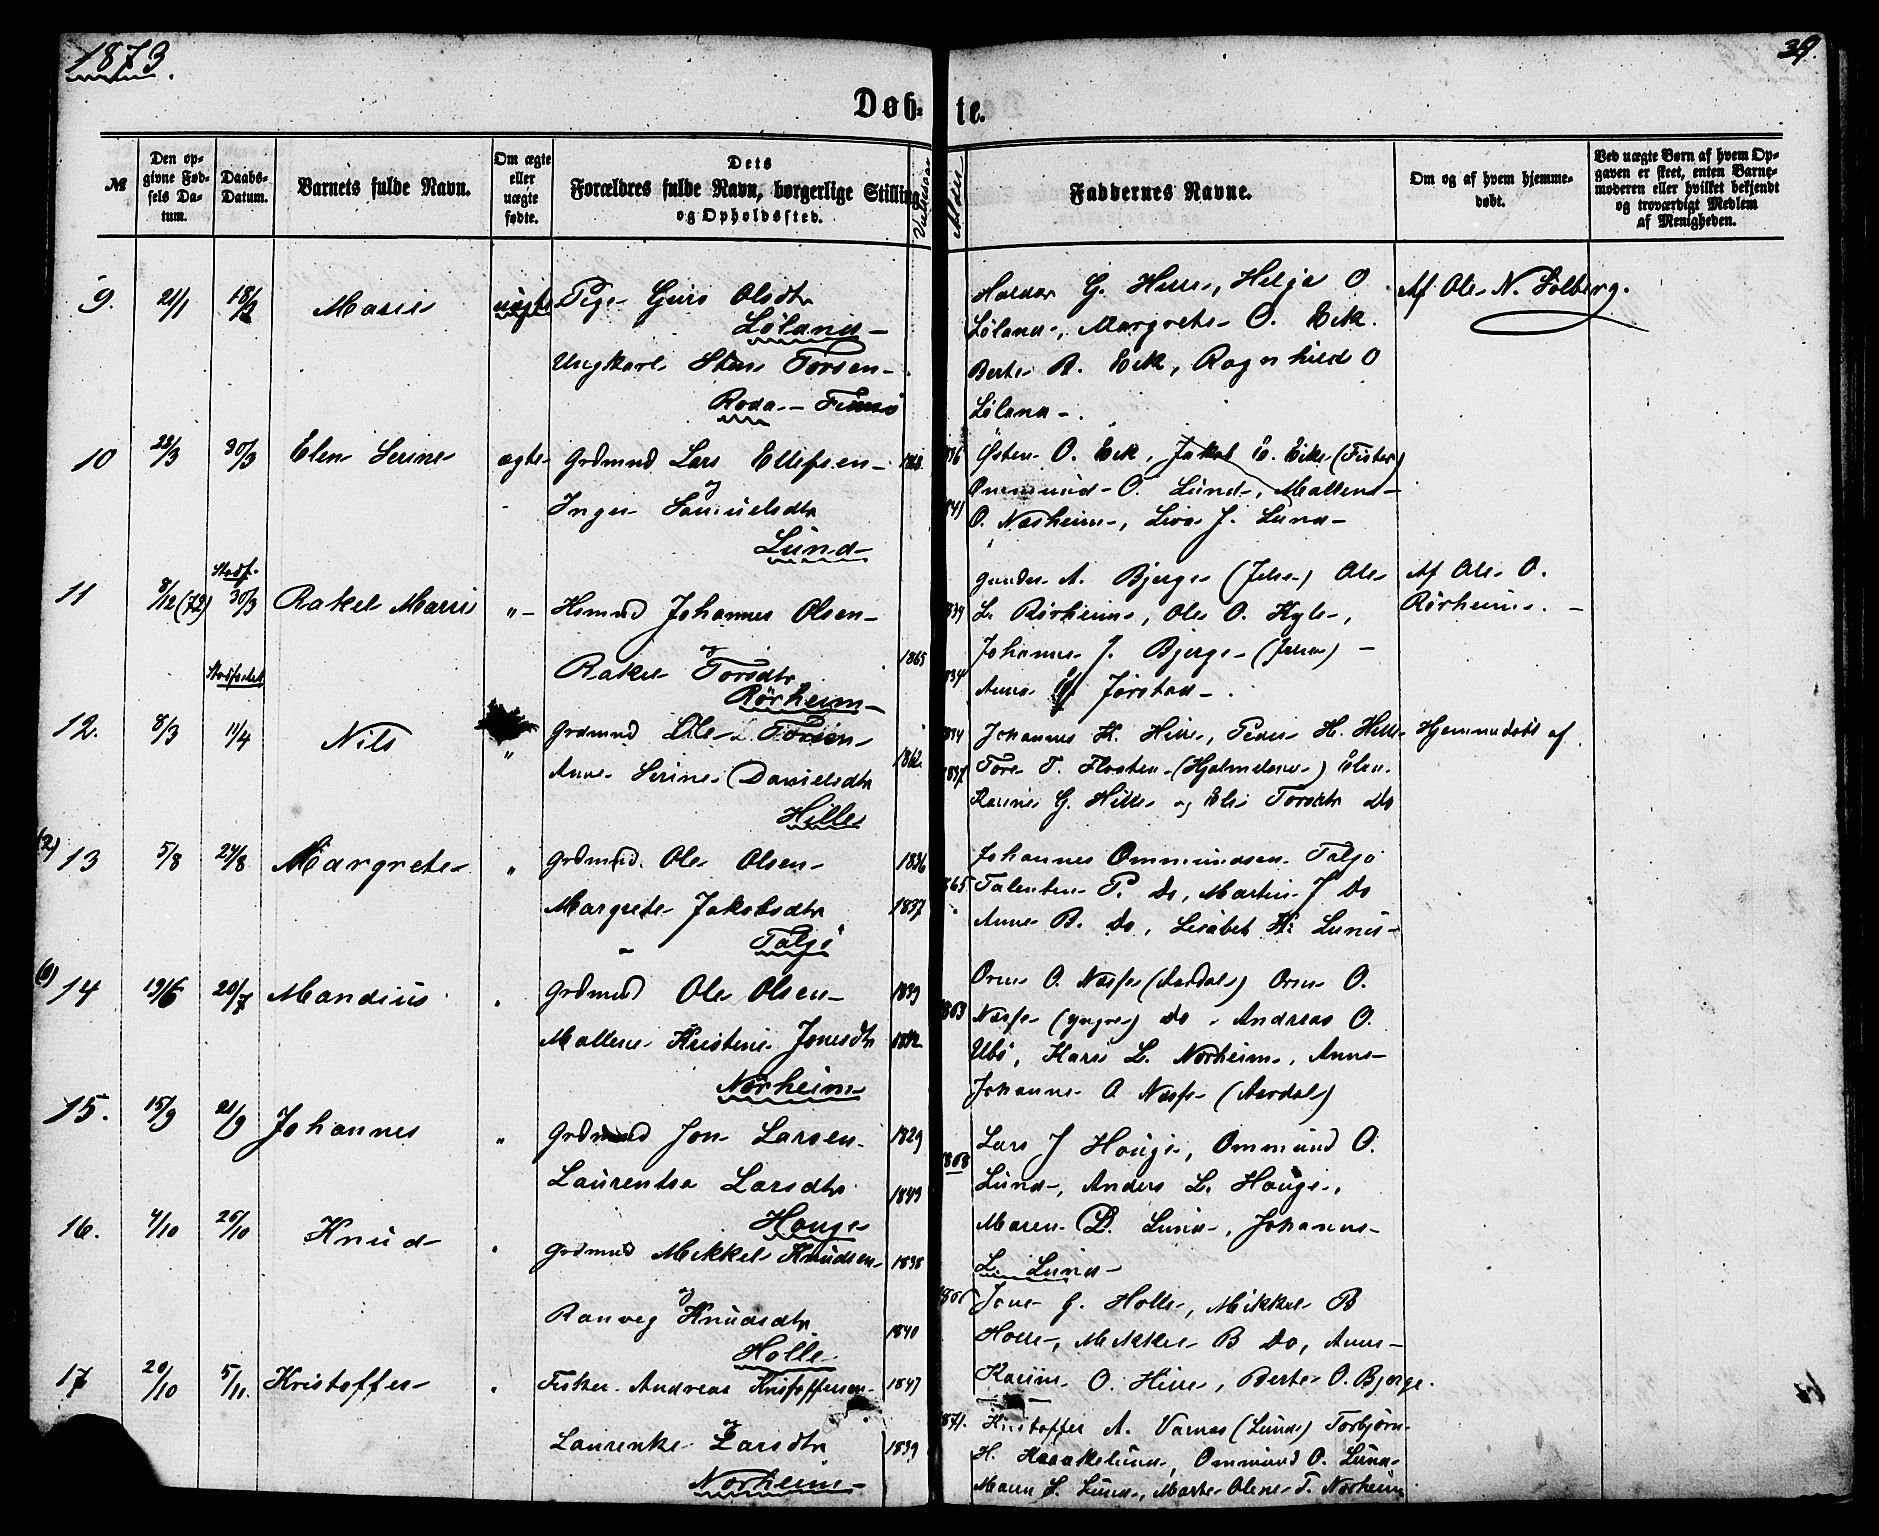 1873.
39.
Døbte.
№
Den opgivne Fødsels Datum.
Daabs-Datum.
Barnets fulde Navn.
Om ægte eller uægte fødte.
Dets Forældres fulde Navn, borgerlige Stilling og Opholdssted.
Alder
Faddernes Navne.
Om og af hvem hjemmedøbt.
Ved uægte Børn af hvem Opgaven er skeet, enten Barnemoderen eller hvilket bekjendt og troværdigt Medlem af Menigheden.
9. 21/1 18/2 Marie uægte Pige Guro Olsdtr
Løland
Ungkarl Sten Torsen
Roda
Haldor G. Hille, Helge O
Løland, Margrete O. Eik.
Berte R. Eik, Ragnhild O
Løland.
Af Ole N. Solberg.
10 22/3 30/3 Elen Serine ægte Grdmnd Lars Ellefsen
og
Inger Samuelsdtr
Lund
Østen O. Eik, Jakob E. Eike (Fister)
Ommund O. Lund, Mallene
O. Nasheim, Liva J. Lund
11 8/12 (72) Stadf. 30/3 Rakel Marie " Hsmnd Johannes Olsen
og
Rakel Torsdtr
Rørheim
1865
Gunder A. Bjerge (Jelse) Ole
L. Rørheim, Ole O. Kyle,
Johannes J. Bjerge (Jelse)
Anna Jørstad.
Af Ole O.
Rørheim.
Stadfæstet
12. 8/3 11/4 Nils " Grdmnd Ole Torsen
Anne Serine Danielsdtr
Hille
1862.
Johannes K. Hille, Peder H. Hille
Tore T. Flosten (Hjelmeland) Elen
Karine G. Hille og Eli Torsdtr Do
Hjemmedøbt af
(2) 13 5/8 24/8 Margrete " Grdmnd. Ole Olsen 1836
Margrete Jakobsdtr 1837
Talgø
Johannes Ommundsen Talgø
Talentin P. Do, Martin J Do
Anne B. Do, Lisabet K. Lund
14 19/6 20/7 Mandius " Grdmnd Ole Olsen 1839
Mallene Kristine Jonesdtr 1842
Norheim
Orm O. Næsse (Aardal) Orm O.
Næsse (yngre) Do, Andreas O.
Ubø, Kari L. Norheim, Anne
Johanne O Næsse (Aardal)
15. 15/9 21/9 Johannes " Grdmnd Jon Larsen 1829
Laurentse Larsdtr 1849
Hauge
1868
Lars J Hauge, Ommund O.
Lund, Anders L. Hauge,
Maren D. Lund, Johanne
L. Lund
16. 4/10 26/10 Knud " Grdmnd Mikkel Knudsen 1838
og
Ranveg Knudsdtr 1840
Holle
Jone G. Holle, Mikkel B
Holle, Mikkel B Do, Anne
Karine O. Hille, Berte O. Bjerge.
17 20/10 5/11. Kristoffer " Fisker Andreas Kristoffersen 1847
og
Laurenke Larsdtr 1839
Norheim
1871.
Kristoffer A. Varnes (Lund) Torbjørn
H. Haakelund, Ommund O. Lund
Maren L. Lund, Marte Olene T. Norheim